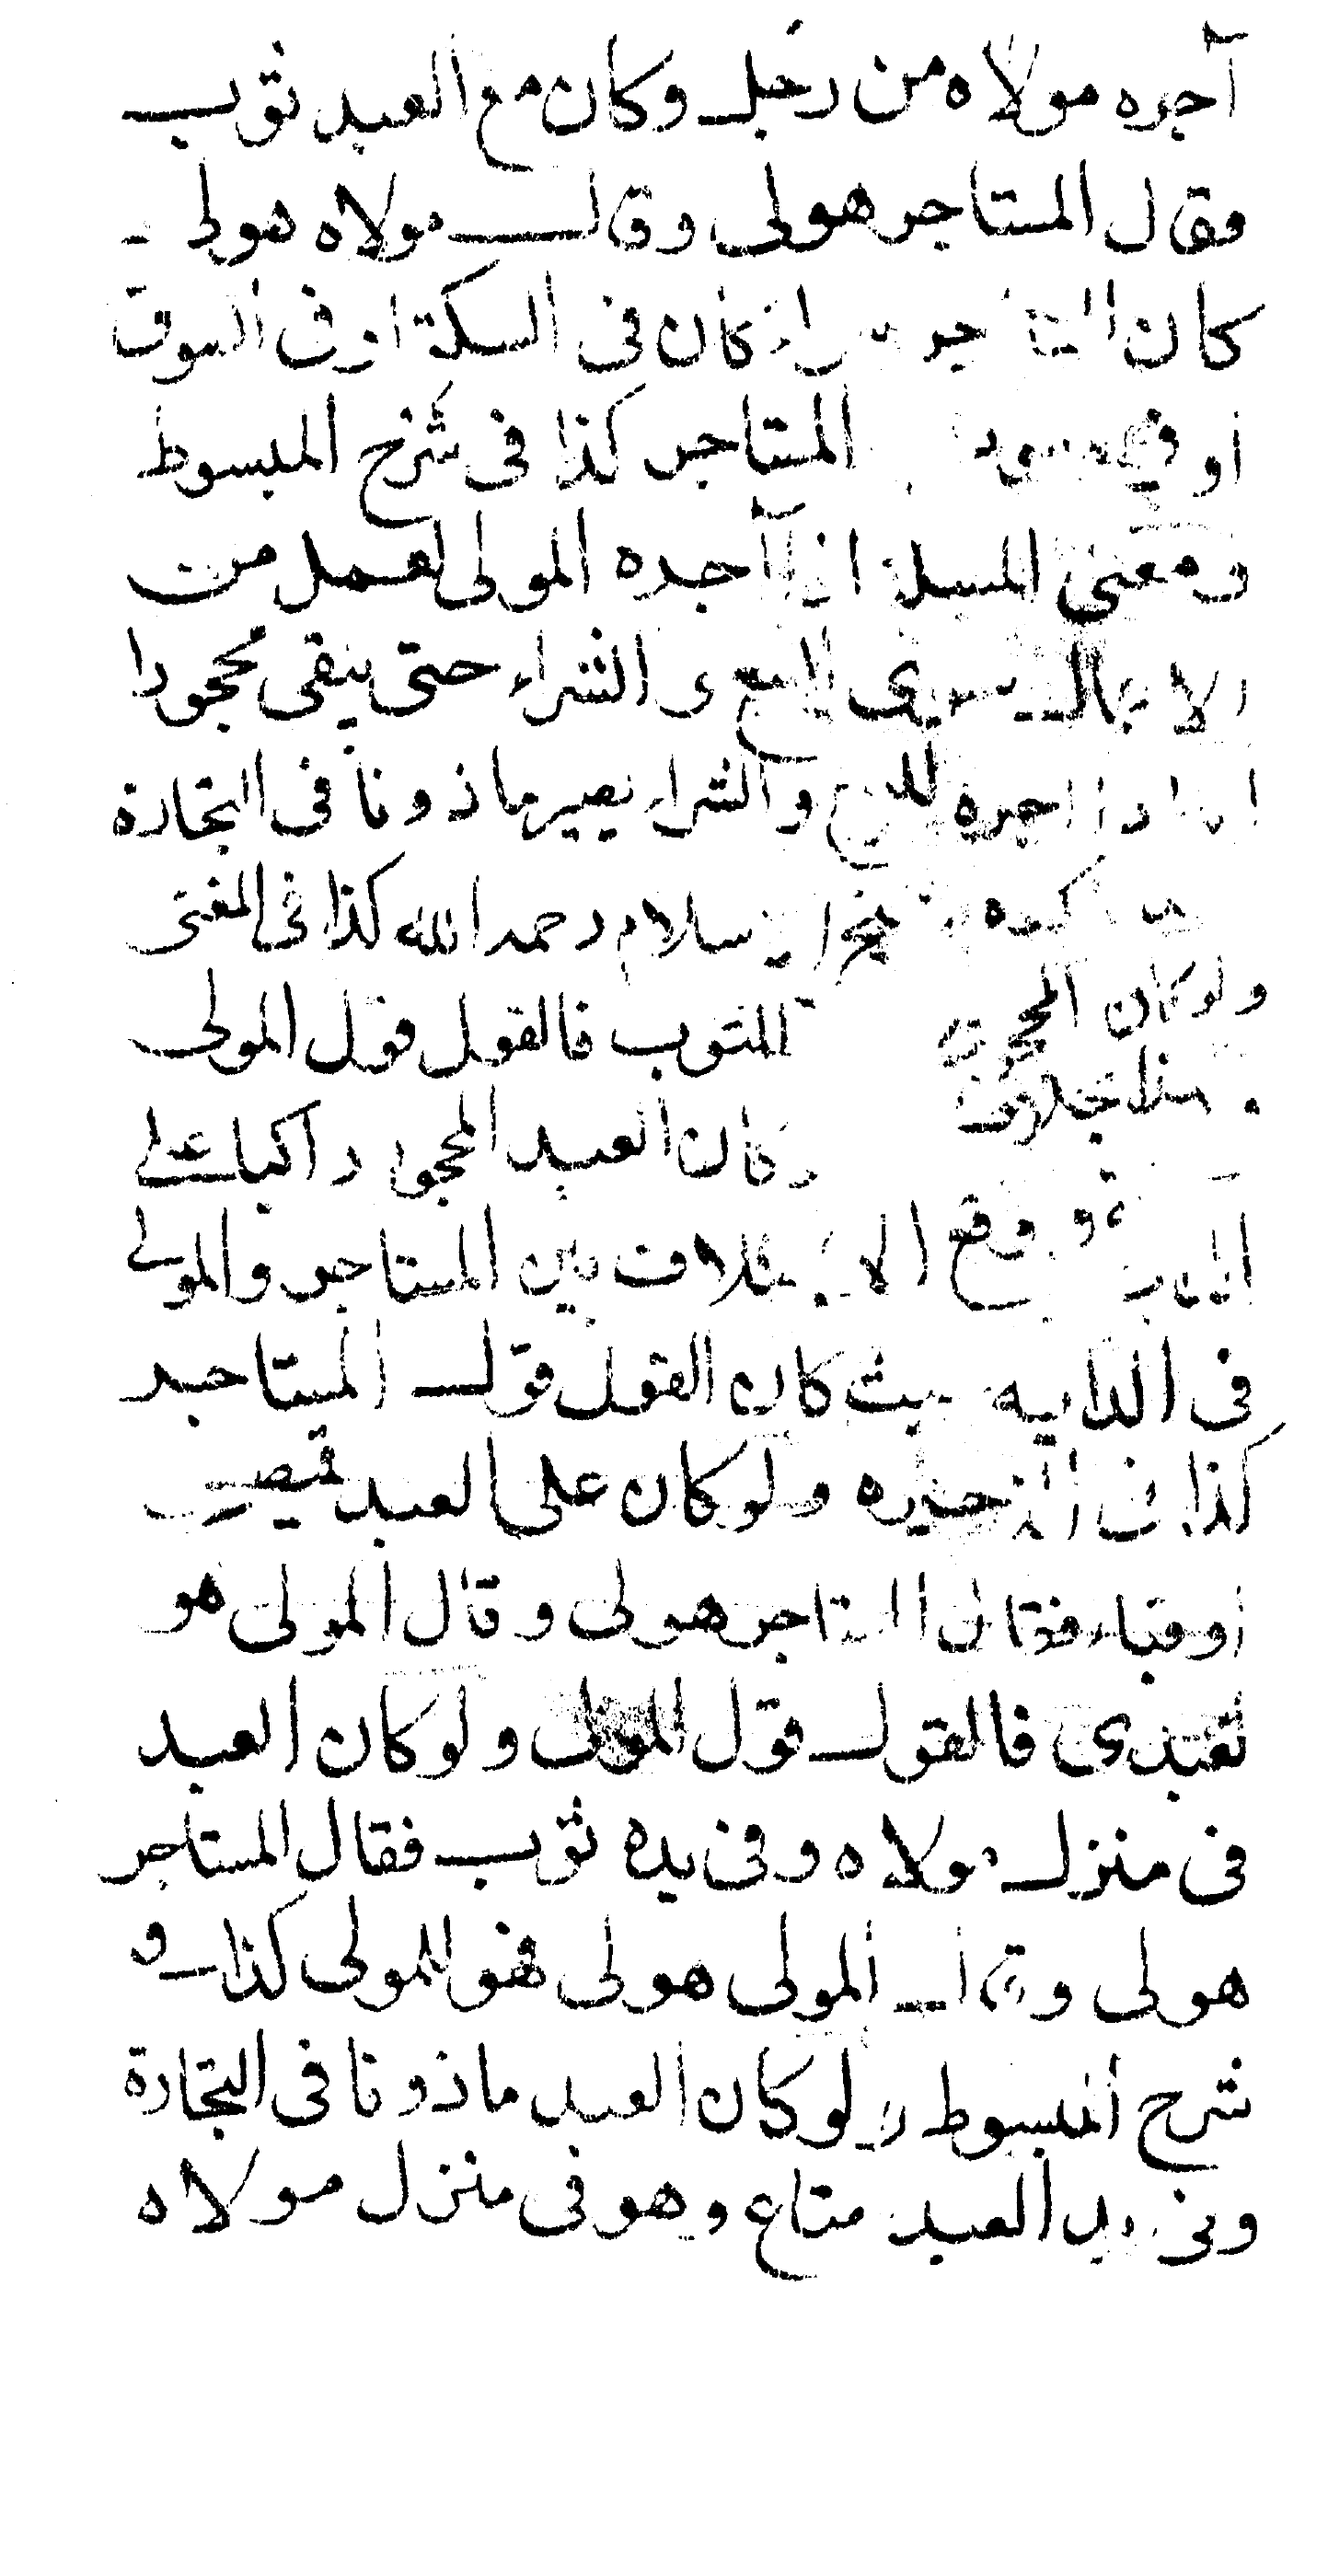 آجره مولاه من رجل وكان مع العبد ثوب
فقال المستاجر هو لى وقال مولاه هو لى
كان فى السكة او فى السوق
او فى المستاجر كذا فى شرح المبسوط
ومعنى المسئلة اذا آجره المولى لعمل من
الاعمال سوى البيع والشراء حتى يبقى محجورا
اما اذا اجره للبيع والشراء يصير ماذونا فى التجارة
سلام رحمه الله كذا فى المغنى
ولو كان المحجور للثوب فالقول قول المولى
هذا بخلاف كان العبد المحجور راكبا على
وقع الاختلاف بين المستاجر والمولى
فى الدابه حيث كان القول قول المستاجر
كذا فى الذخيره ولو كان على العبد قميص
او قباء فقال المستاجر هو لى وقال المولى هو
لعبدى فالقول قول المولى ولو كان العبد
فى منزل مولاه وفى يده ثوب فقال المستاجر
هو لى وقال المولى هو لى فهو للمولى كذا فى
شرح المبسوط ولو كان العبد ماذونا فى التجارة
وفى يد العبد متاع وهو فى منزل مولاه